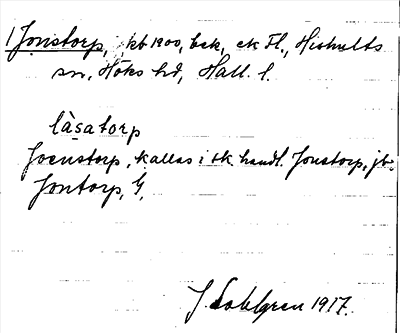 1 Jonstorp, kb 1900, bek, ek Fl., Hishults
sn, Höks hd, Hall. l.
låsatorp
Joenstorp, kallas i sk. handl. Jonstorp, jb.
Jontorp, G.
J. Sahlgren 1917.